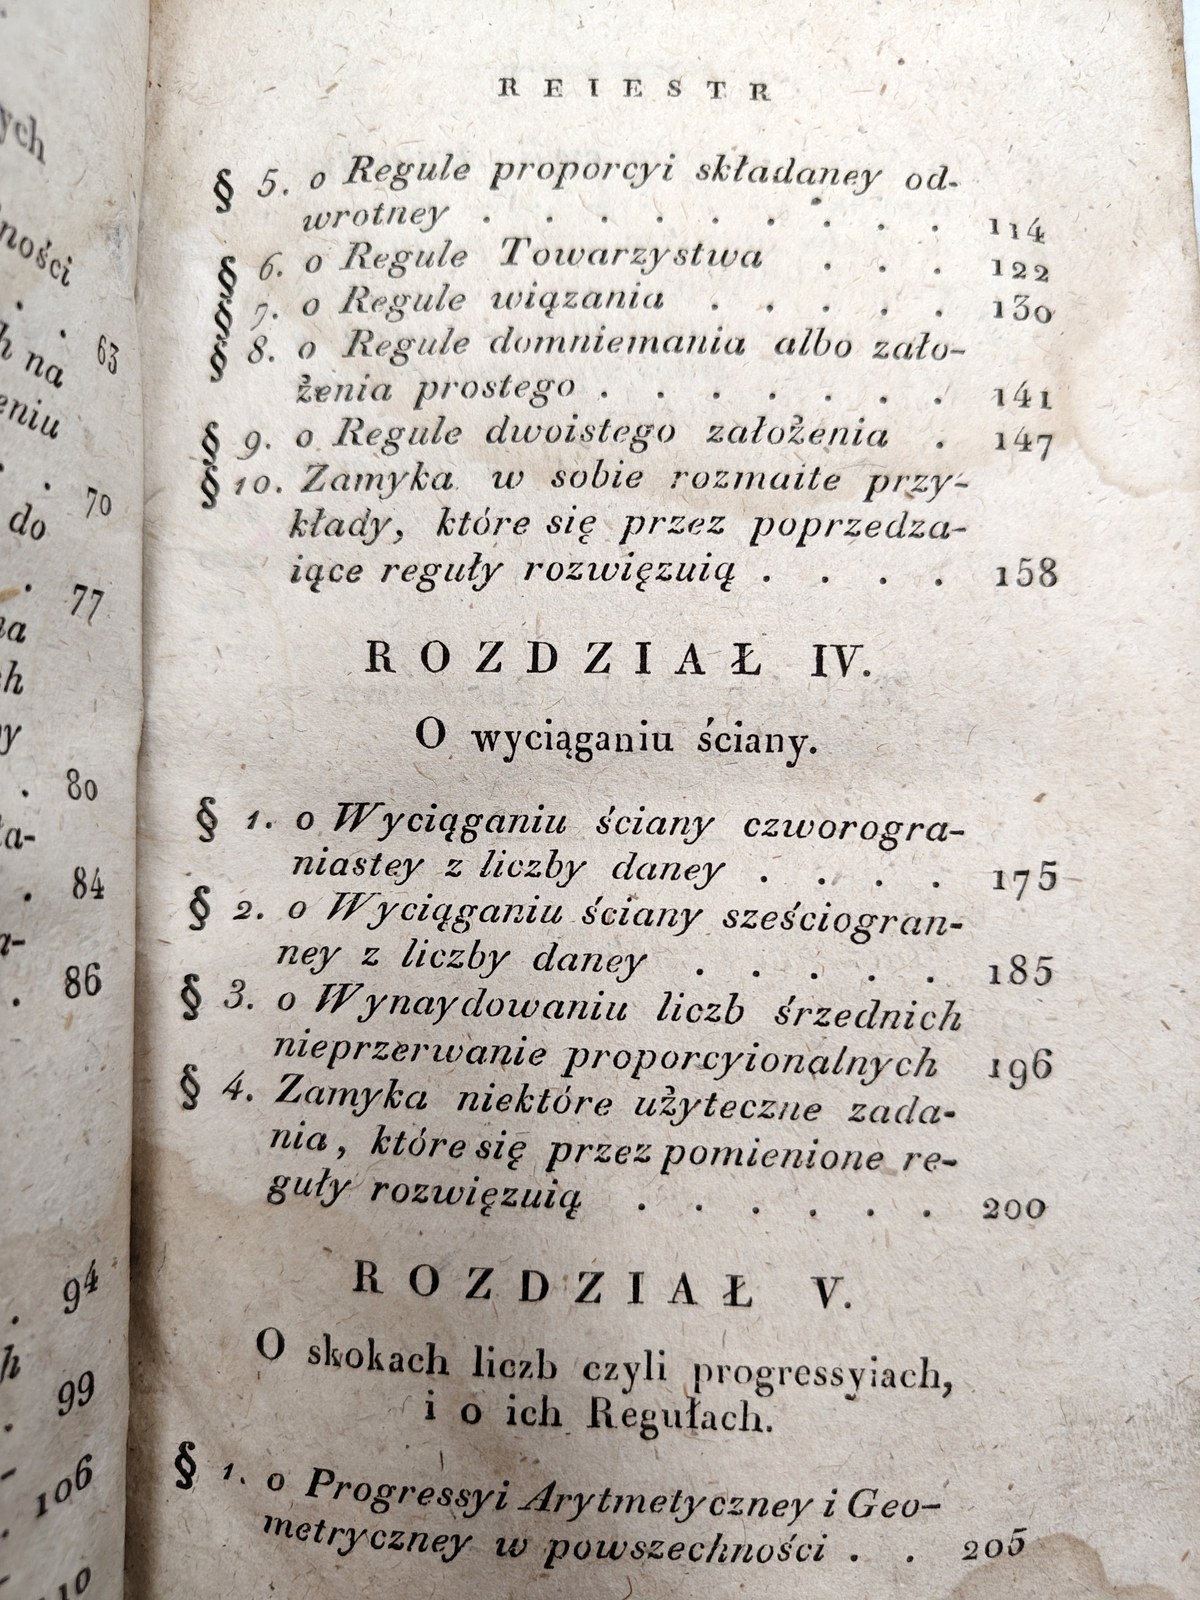 ych
ności
. . 63
h na
eniu
. . 70
do
. 77
na
ch
y
. 80
ła-
. 84
a-
. 86
. 94
h
. 99
. 106
110
REIESTR
§ 5. o Regule proporcyi składaney od-
wrotney . . . . . . . . . 114
§ 6. o Regule Towarzystwa . . . 122
§ 7. o Regule wiązania . . . . . 130
§ 8. o Regule domniemania albo zało-
żenia prostego . . . . . . . 141
§ 9. o Regule dwoistego założenia . 147
§ 10. Zamyka w sobie rozmaite przy-
kłady, które się przez poprzedza-
iące reguły rozwięzuią . . . . 158
ROZDZIAŁ IV.
O wyciąganiu ściany.
§ 1. o Wyciąganiu ściany czworogra-
niastey z liczby daney . . . . 175
§ 2. o Wyciąganiu ściany sześciogran-
ney z liczby daney . . . . . 185
§ 3. o Wynaydowaniu liczb śrzednich
nieprzerwanie proporcyionalnych 196
§ 4. Zamyka niektóre użyteczne zada-
nia, które się przez pomienione re-
guły rozwięzuią . . . . . . 200
ROZDZIAŁ V.
O skokach liczb czyli progressyiach,
i o ich Regułach.
§ 1. o Progressyi Arytmetyczney i Geo-
metryczney w powszechności . . 205